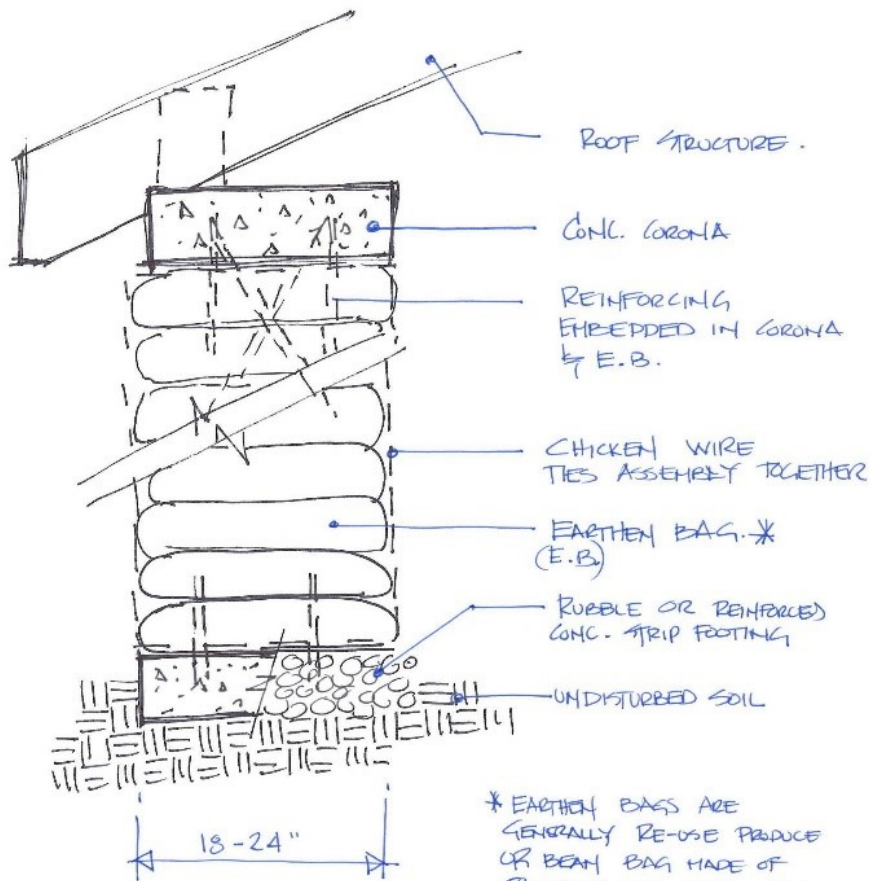 ROOF STRUCTURE.
CONC. CORONA
REINFORCING
EMBEDDED IN CORONA
& E.B.
CHICKEN WIRE
TIES ASSEMBLY TOGETHER
EARTHEN BAG.*
(E.B)
RUBBLE OR REINFORCED
CONC. STRIP FOOTING
UNDISTURBED SOIL
18-24"
* EARTHEN BAGS ARE
GENERALLY RE-USE PRODUCE
OR BEAN BAG MADE OF